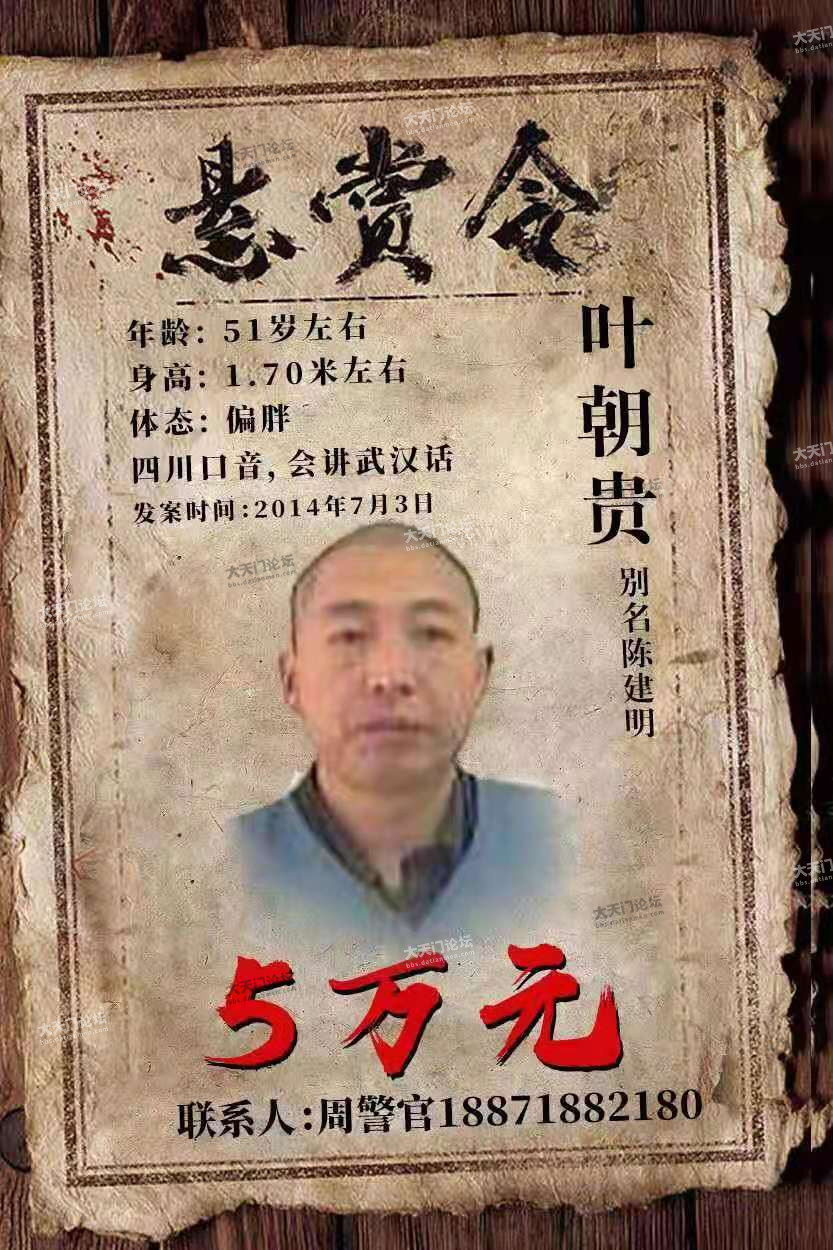 悬赏令
年龄：51岁左右
身高：1.70米左右
体态：偏胖
四川口音，会讲武汉话
发案时间:2014年7月3日
叶朝贵
别名陈建明
5万元
联系人:周警官18871882180
大天门论坛